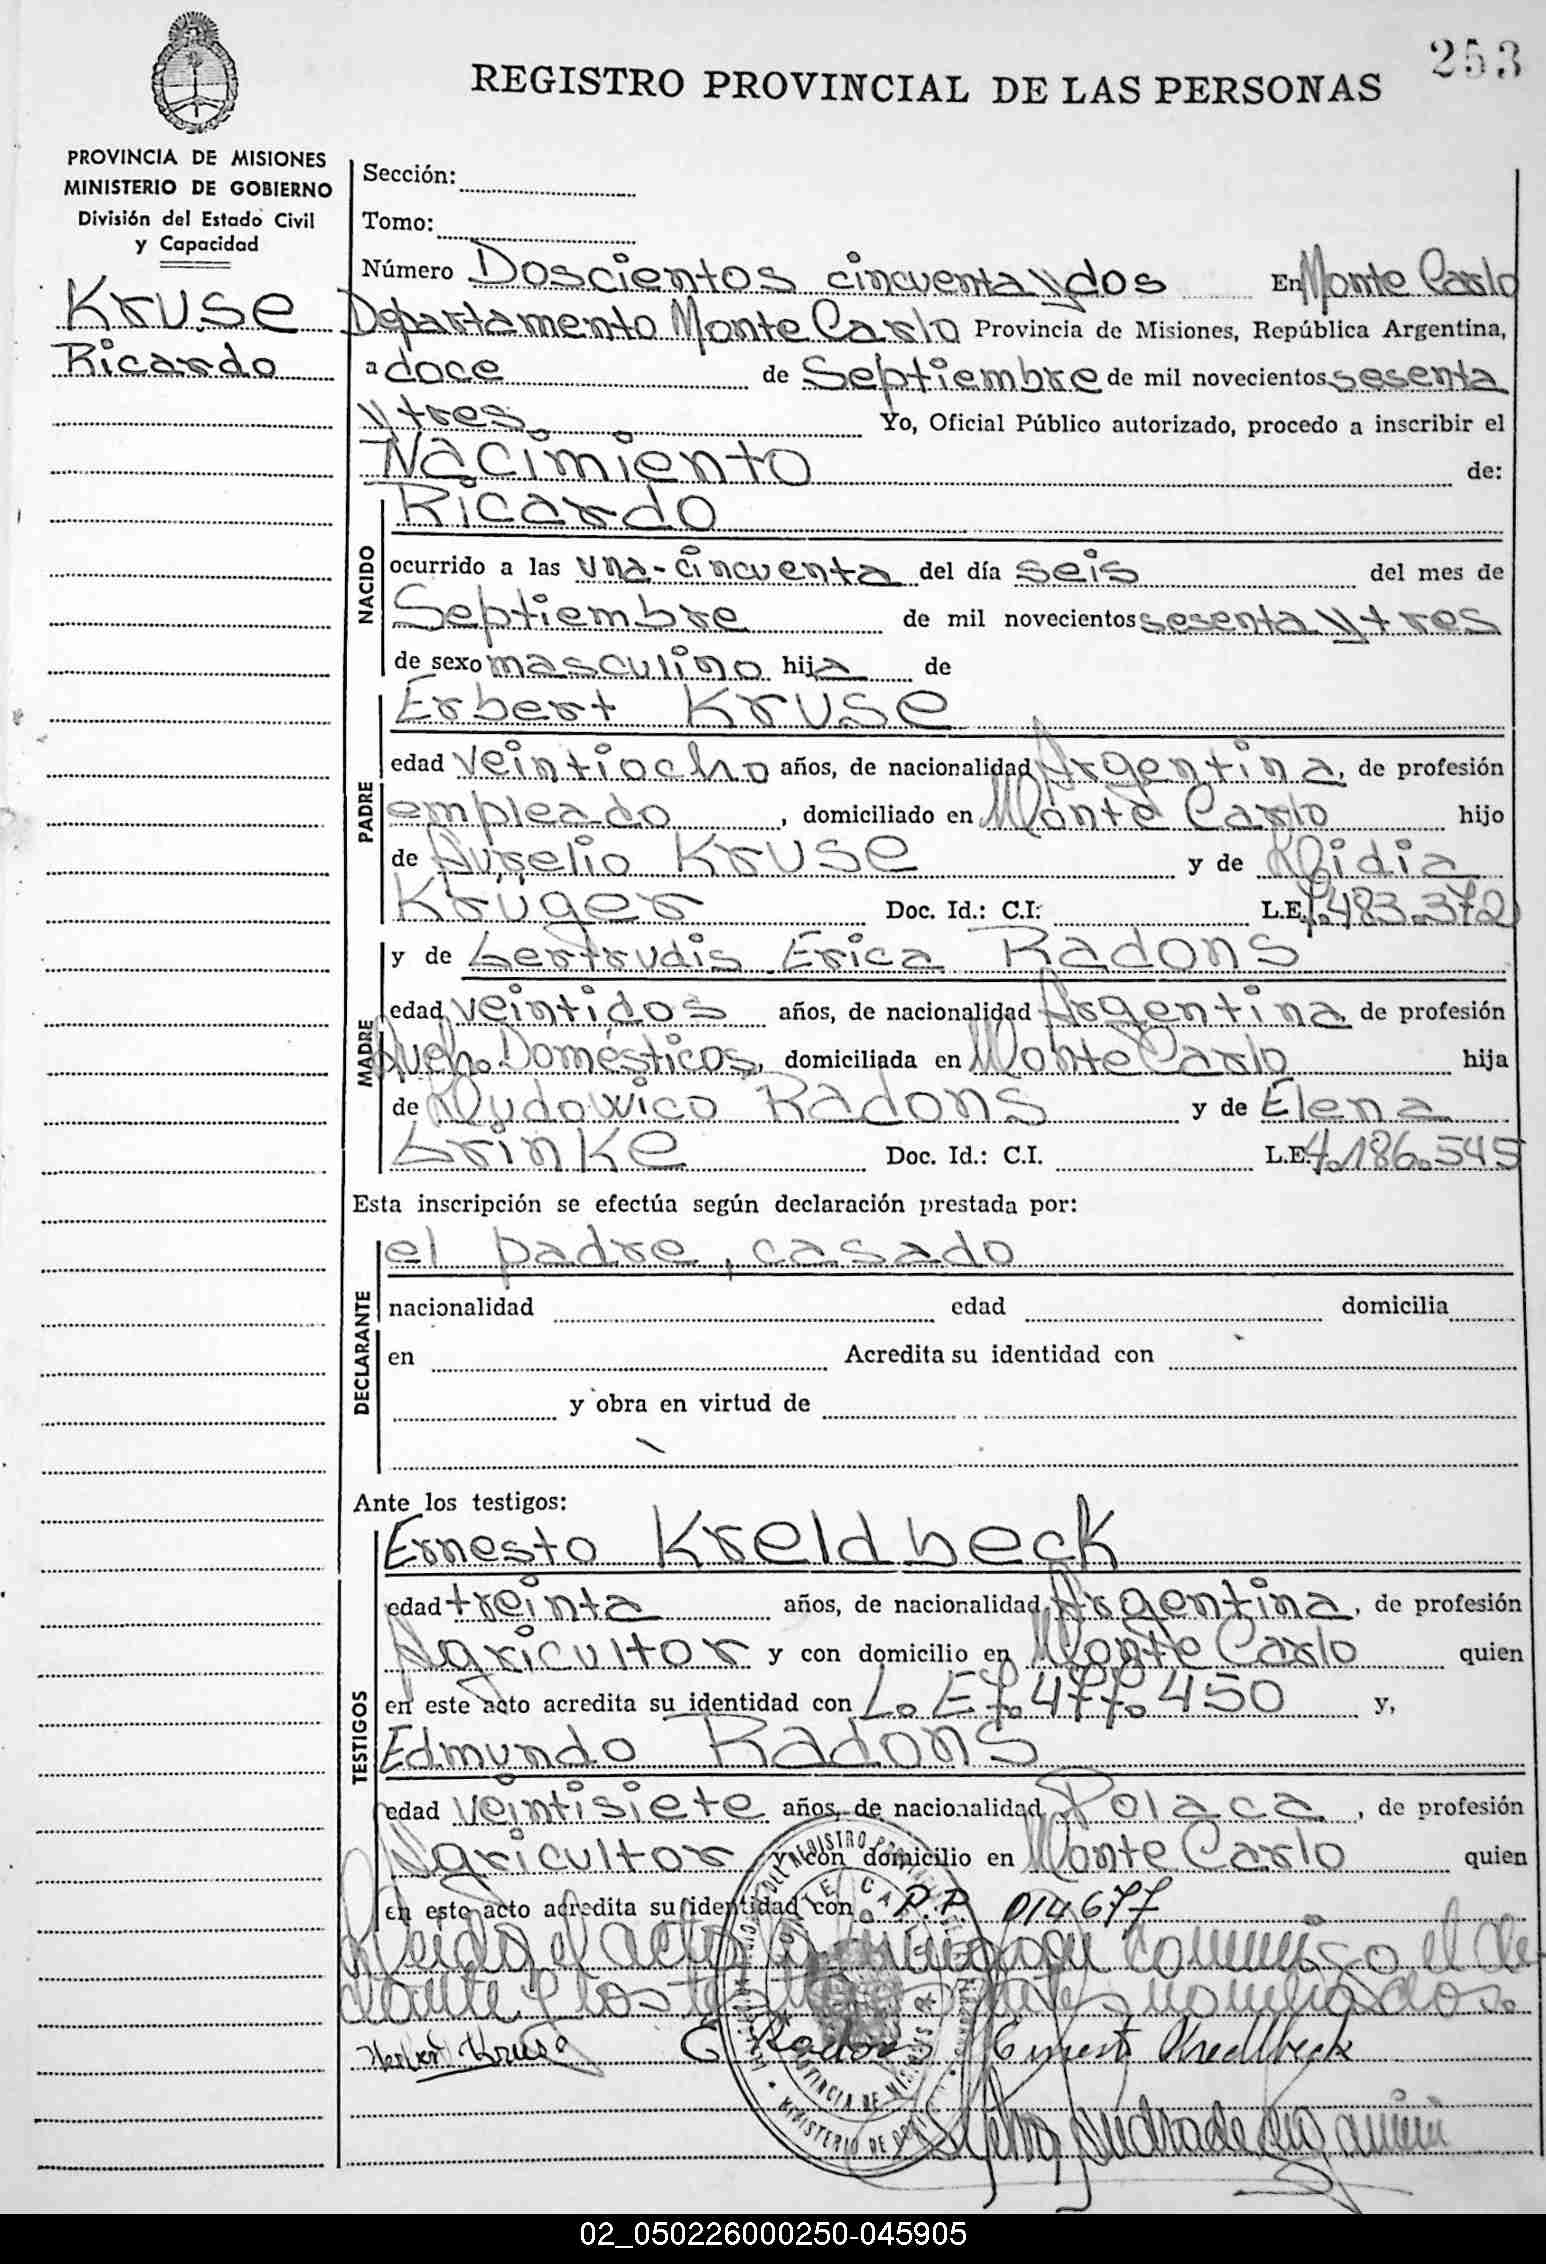 253
REGISTRO PROVINCIAL DE LAS PERSONAS
PROVINCIA DE MISIONES
MINISTERIO DE GOBIERNO
División del Estado Civil
y Capacidad
Kruse
Ricardo
Sección:
Tomo:
Número Doscientos cincuenta y dos En Monte Carlo
Departamento Monte Carlo Provincia de Misiones, República Argentina,
a doce de Septiembre de mil novecientos sesenta
y tres Yo, Oficial Público autorizado, procedo a inscribir el
Nacimiento de:
NACIDO
Ricardo
ocurrido a las una-cincuenta del día seis del mes de
Septiembre de mil novecientos sesenta y tres
de sexo masculino hija de
PADRE
Erbert Kruse
edad veintiocho años, de nacionalidad Argentina, de profesión
empleado, domiciliado en Monte Carlo hijo
de Aurelio Kruse y de Lidia
Krüger Doc. Id.: C.I. L.E. 7.483.372
MADRE
y de Gertrudis Erica Radons
edad veintidos años, de nacionalidad Argentina de profesión
Queh. Domésticos, domiciliada en Monte Carlo hija
de Ludowico Radons y de Elena
Grinke Doc. Id.: C.I. L.E. 4.186.545
Esta inscripción se efectúa según declaración prestada por:
DECLARANTE
el padre, casado
nacionalidad edad domicilia
en Acredita su identidad con
y obra en virtud de
Ante los testigos:
TESTIGOS
Ernesto Kreldbeck
edad treinta años, de nacionalidad Argentina, de profesión
Agricultor y con domicilio en Monte Carlo quien
en este acto acredita su identidad con L.E 7.477.450 y,
Edmundo Radons
edad veintisiete años, de nacionalidad Polaca, de profesión
Agricultor y con domicilio en Monte Carlo quien
en este acto acredita su identidad con P.P 014677
Leida el acta la firman conmigo el de
clarante y los testigos antes nombrados.
Herbert Kruse E Radons Ernesto Kredlbeck
02_050226000250-045905